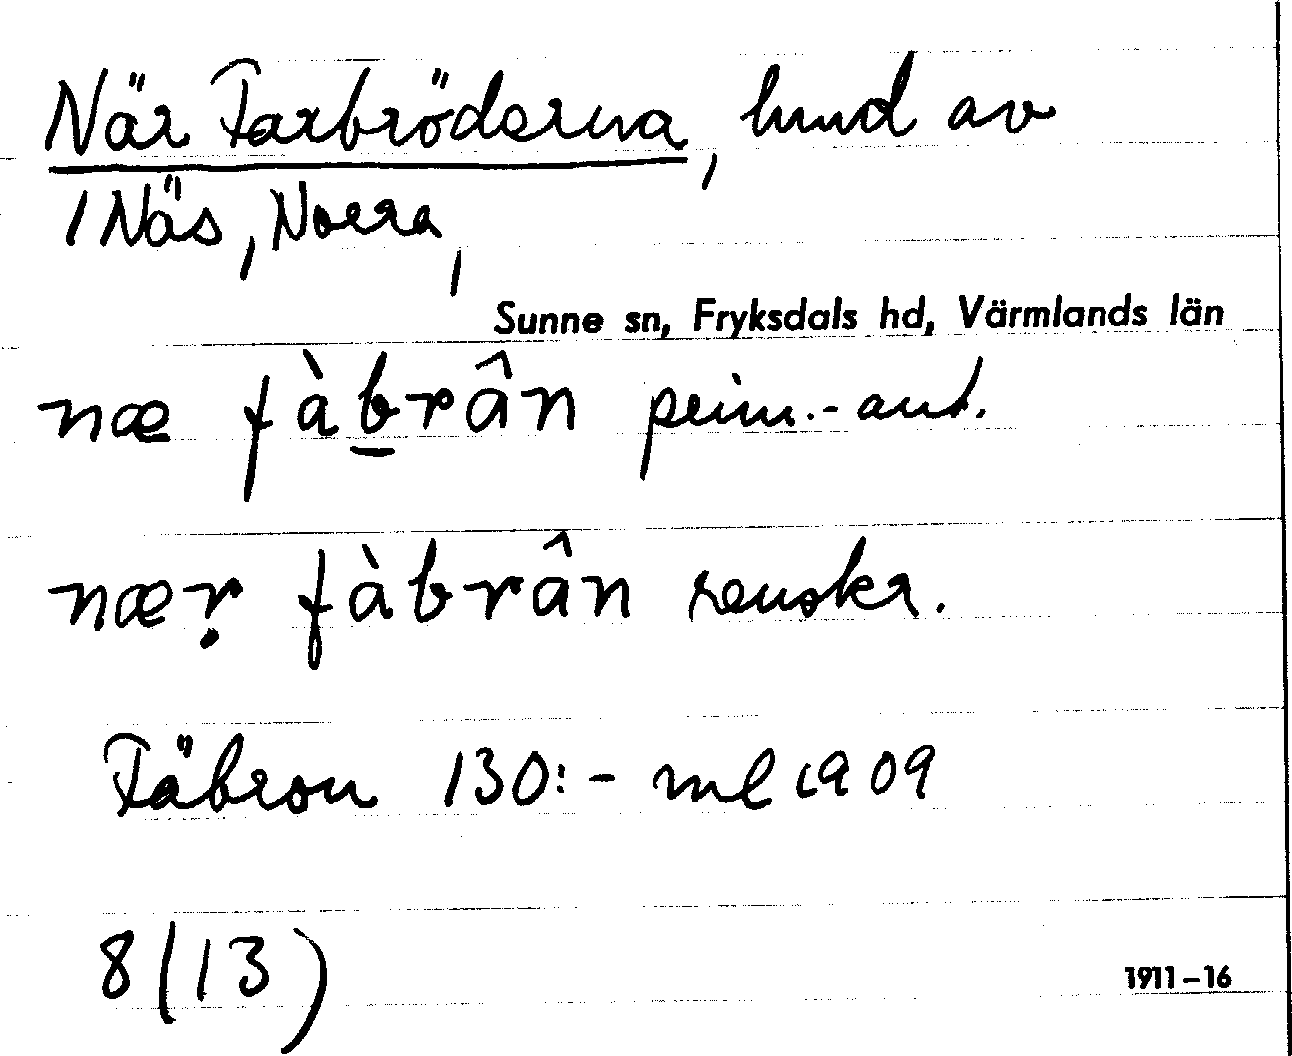 När Farbröderna, hmd av
1 Näs, Norra,
Sunne sn, Fryksdals hd, Värmlands län
næ fàb̲rân prim.-ant.
næṛ fàbrân renskr.
Fäbron 130:- ml 1909
8 (13)
1911–16